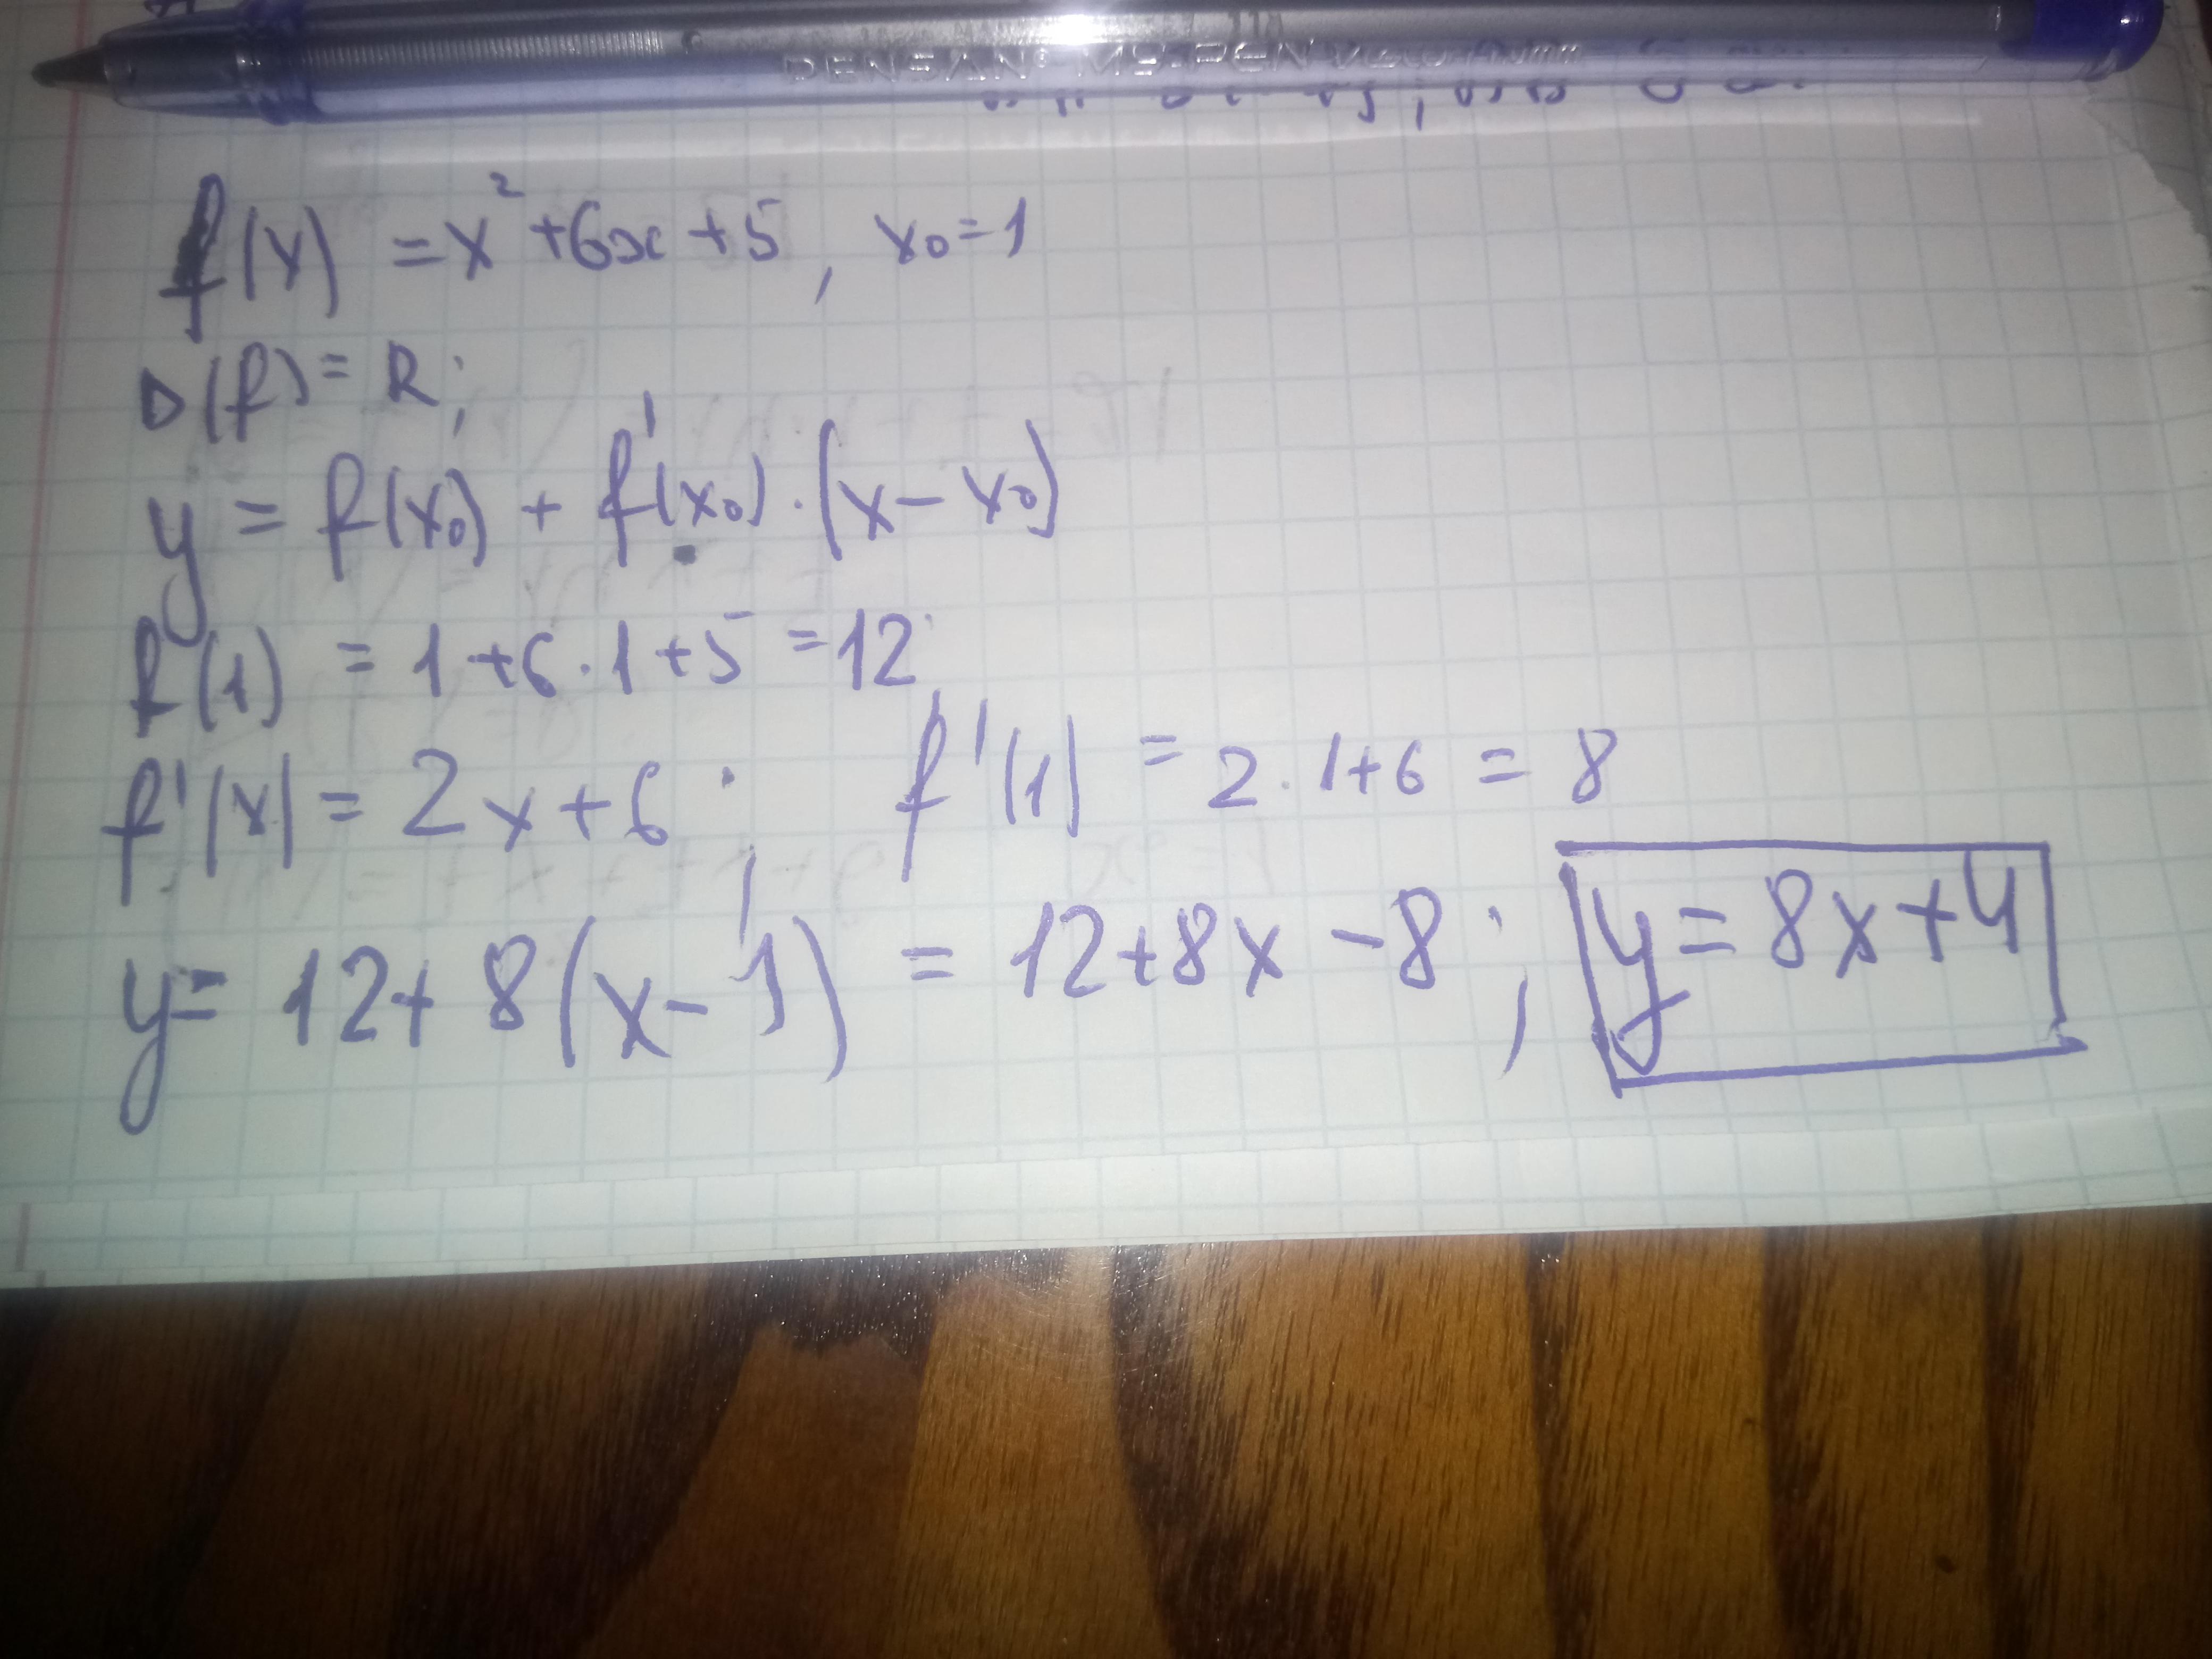 f(x) = x² + 6x + 5, x₀ = 1
D(f) = R;
y = f(x₀) + f'(x₀) · (x - x₀)
f(1) = 1 + 6 · 1 + 5 = 12
f'(x) = 2x + 6; f'(1) = 2 · 1 + 6 = 8
y = 12 + 8(x - 1) = 12 + 8x - 8; y = 8x + 4